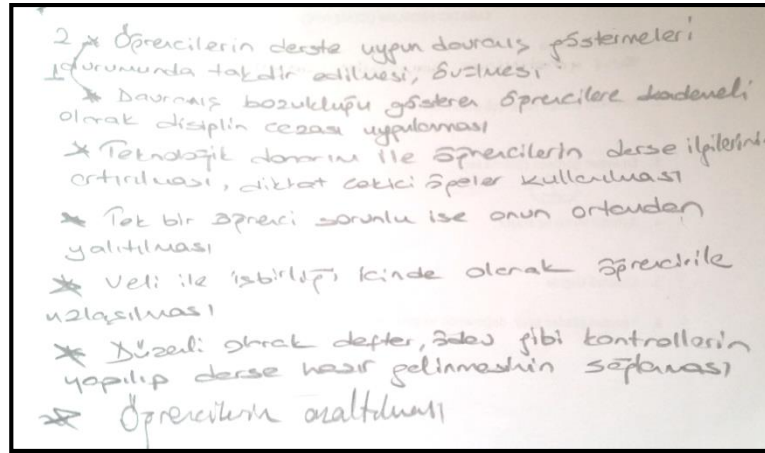 2 * Öğrencilerin derste uygun davranış göstermeleri
durumunda takdir edilmesi, övülmesi
* Davranış bozukluğu gösteren öğrencilere kademeli
olarak disiplin cezası uygulaması
* Teknolojik donanım ile öğrencilerin derse ilgilerini
artırılması, dikkat çekici öğeler kullanılması
* Tek bir öğrenci sorunlu ise onun ortamdan
yalıtılması
* Veli ile işbirliği içinde olarak öğrenci ile
uzlaşılması
* Düzenli olarak defter, ödev gibi kontrollerin
yapılıp derse hazır gelinmesinin sağlanması
* Öğrencilerin azaltılması